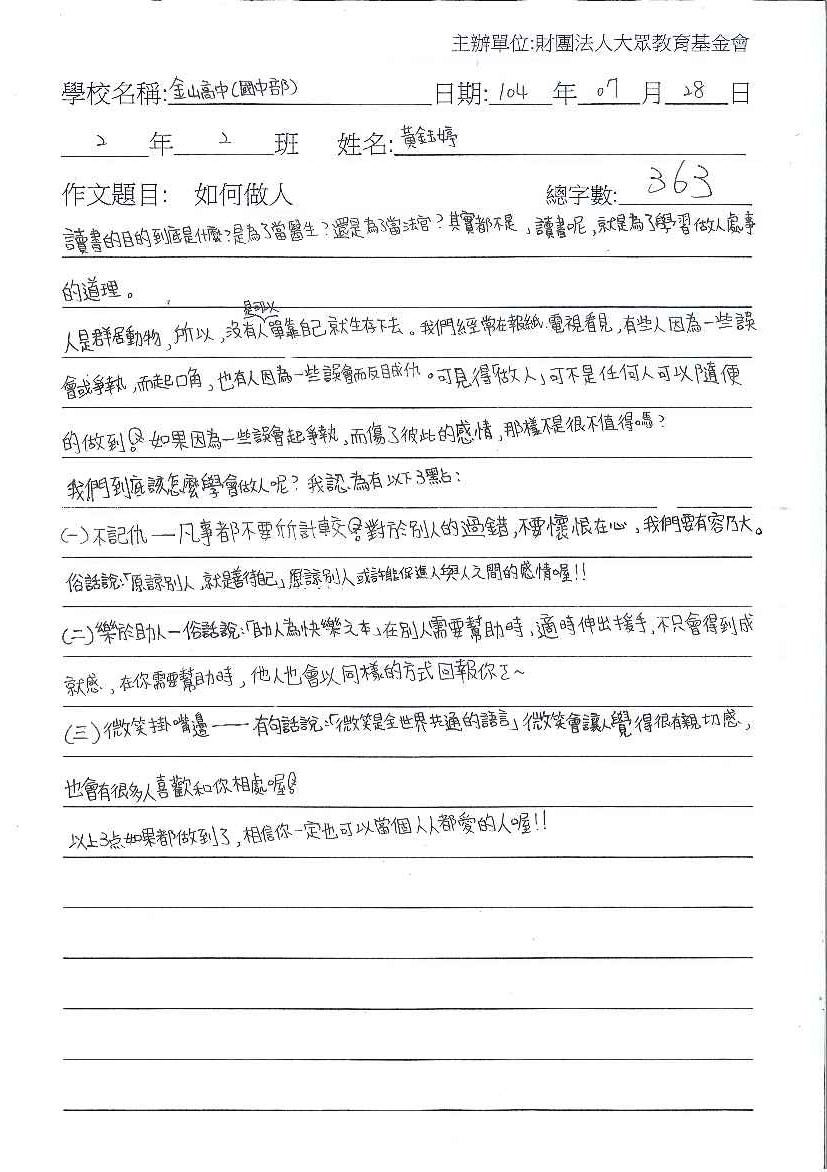 主辦單位:財團法人大眾教育基金會
學校名稱:金山高中(國中部) 日期: 104 年 07 月 28 日
2 年 2 班 姓名: 黃鈺婷
作文題目: 如何做人 總字數: 363
讀書的目的到底是什麼?是為了當醫生?還是為了當法官?其實都不是,讀書呢,就是為了學習做人處事
的道理。
是可以
人是群居動物,所以,沒有人單靠自己就生存下去。我們經常在報紙、電視看見,有些人因為一些誤
會或爭執,而起口角,也有人因為一些誤會而反目成仇。可見得「做人」可不是任何人可以隨便
的做到。如果因為一些誤會起爭執,而傷了彼此的感情,那樣不是很不值得嗎?
我們到底該怎麼學會做人呢?我認為有以下3點:
(一)不記仇—凡事都不要所計較。對於別人的過錯,不要懷恨在心,我們要有容乃大。
俗話說:「原諒別人,就是善待自己」,原諒別人或許能促進人與人之間的感情喔!!
(二)樂於助人—俗話說:「助人為快樂之本」在別人需要幫助時,適時伸出援手,不只會得到成
就感,在你需要幫助時,他人也會以同樣的方式回報你ㄛ~
(三)微笑掛嘴邊——有句話說:「微笑是全世界共通的語言」微笑會讓人覺得很有親切感,
也會有很多人喜歡和你相處喔。
以上3点如果都做到了,相信你一定也可以當個人人都愛的人喔!!